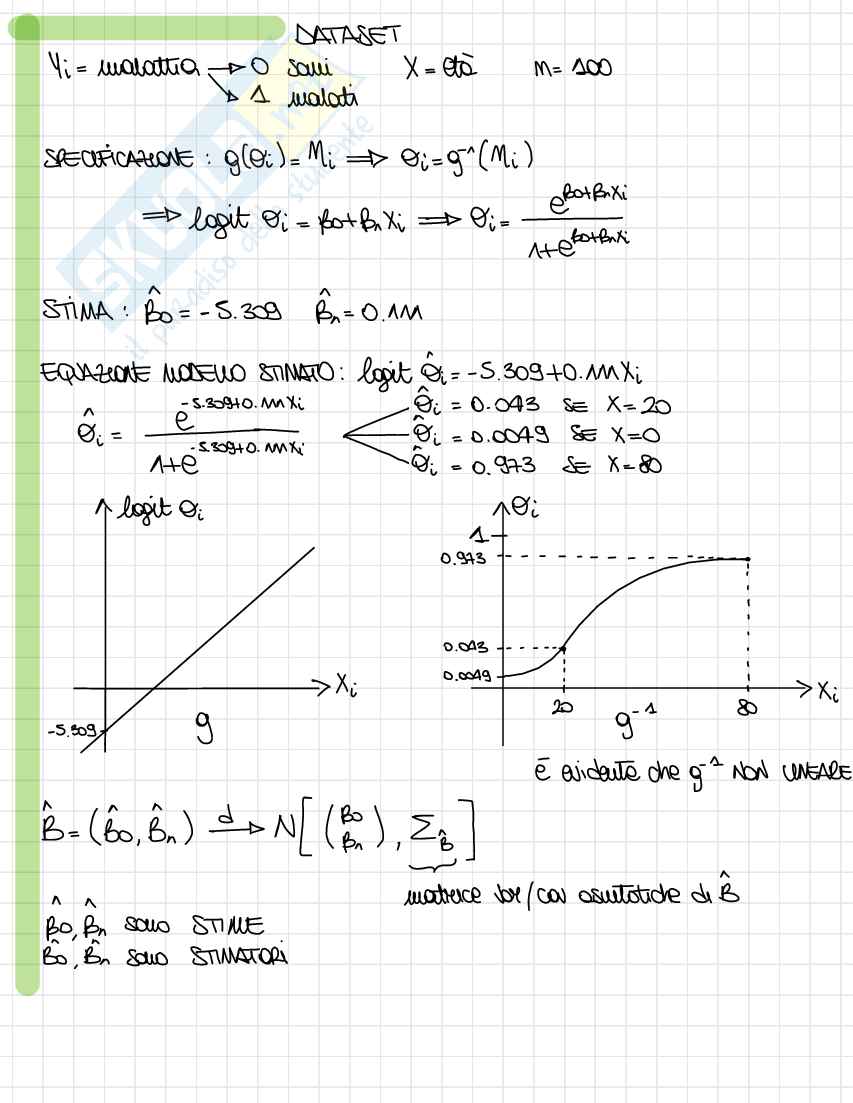 DATASET
Yi = malattia → 0 sani X = età M = 100
↘ 1 malati
SPECIFICAZIONE : g(θi) = Mi ⟹ θi = g⁻¹(Mi)
⟹ logit θi = β0+β1Xi ⟹ θi = e^(β0+β1Xi) / 1+e^(β0+β1Xi)
STIMA : β̂0 = -5.309 β̂1 = 0.111
EQUAZIONE MODELLO STIMATO : logit θ̂i = -5.309+0.111Xi
θ̂i = e^(-5.309+0.111Xi) / 1+e^(-5.309+0.111Xi)
θ̂i = 0.043 SE X=20
θ̂i = 0.0049 SE X=0
θ̂i = 0.973 SE X=80
logit θi
Xi
-5.309
g
θi
1
0.973
0.043
0.0049
20
80
Xi
g⁻¹
è evidente che g⁻¹ NON LINEARE
B̂ = (β̂0, β̂1) →d N[(β0 β1), Σ_B̂]
matrice var/cov asintotiche di B̂
β̂0, β̂1 sono STIME
B̂0, B̂1 sono STIMATORI
SKUOLA.net
il paradiso dello studente